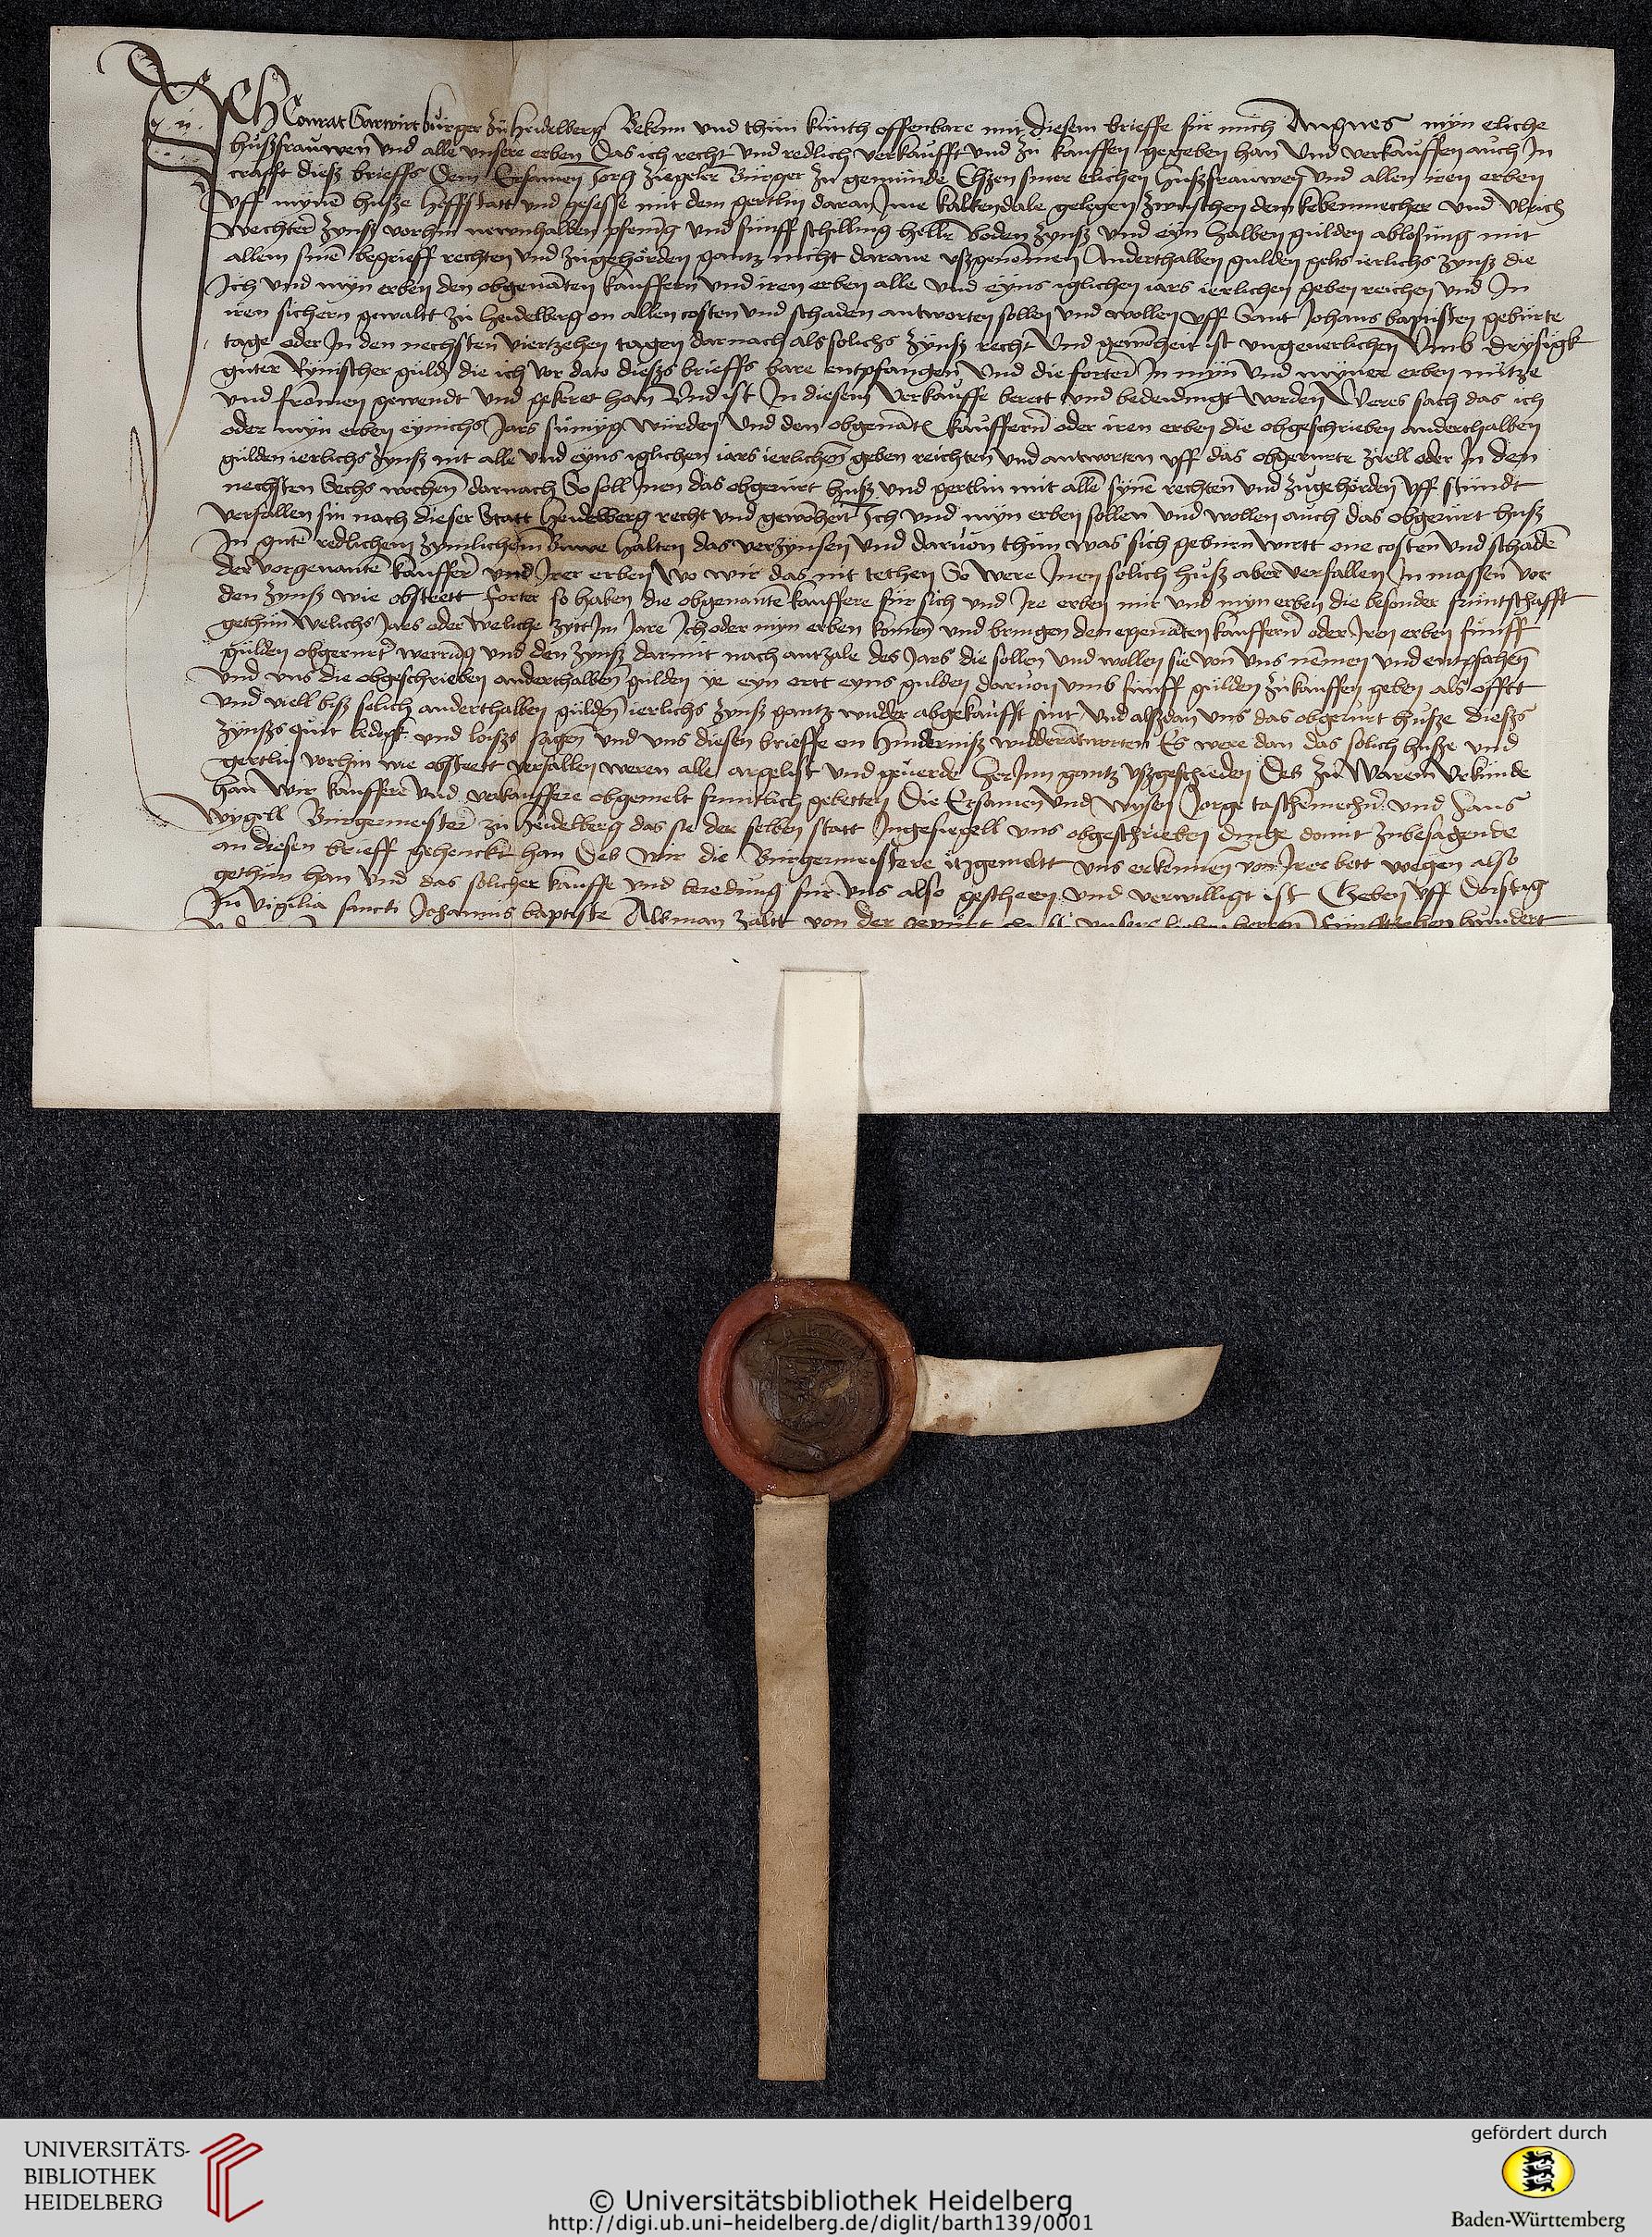 Ich Conrat Garwirt burger zu Heidelberg Bekenn und thün künth offenbare mit diesem brieffe für mich Angnes myn eliche
hußfrauwen und alle unsere erben Das ich recht und redlich verkaufft und zu kauffen gegeben han und verkauffen auch In
crafft diesz brieffs Dem Ersamen Jorg Ziegeler Burger zu gemünde Elszen siner elichen huszfrauwen und allen iren erben
uff mynē husze hoffstatt und gesesse mit dem gertlin daran Ime kaltendale gelegen zwuschen dem kebenmecher und Ulrich
wechter zynsz vorhin pfenīg und funff schilling heller boden zynsz und eyn halben gulden ablosung mit
allem sinē begrieff rechten und zugehörden gantz nicht darane uszgenōmen Anderthalben gulden gelts ierlichs zynsz die
Ich und myn erben den obgenāten kauffern und iren erben alle und eyns iglichen iars ierlichen geben reichen und In
iren sichern gewaltt zu Heidelberg on allen costen und schaden antworten sollen und wollen uff Sant Johans baptisten gebürte
tage oder In den nechsten viertzehen tagen darnach als solichs zynsz recht und gewōheit ist ungeuerlichen Umb drysigk
guter Rynischer guld die ich vor dato dieszs brieffs bare entpfangen und die forter In myn und myner erben nütze
und frōmen gewendt und gekeret han Und ist In diesem verkauffe berett und bededingt worden Weres sach das ich
oder myn erben eynichs Jars sümyg würden und den obgenāt kauffern oder iren erben die obgeschrieben anderthalben
gülden ierlichs zynsz nit alle und eyns iglichen iars ierlichen geben reichten und antworten uff das obgerurte ziell oder In den
nechsten Sechs wochen darnach So soll Inen das obgerürt husz und gertlin mit allē synē rechten und zugehörden uff stündt
verfallen sin nach dieser Statt Heidelberg recht und gewōheit Ich und myn erben sollen und wollen auch das obgerürt husz
In gutē redlichem zymlichem Buwe halten das verzynsen und daruon thün was sich geburn wirtt one costen und schadē
der vorgenantē kauffer und Irer erben Wo wir das nit tethen So were Inen solich husz aber verfallen In massen vor
den zynsz wie obsteett Forter so haben die obgenante kauffere für sich und Ire erben mir und myn erben die besonder früntschafft
gethün Welichs Jars oder weliche zytt Im Jare Ich oder myn erben komen und bringen den egenāten kauffern oder Iren erben fünff
gülden obgerurt werung und den zynsz darmit nach antzale des Jars die sollen und wollen sie von uns nēmen und entpfahen
Und uns die obgeschrieben anderthalben gulden ye eyn ortt eyns gulden daruon umb fünff gülden zukauffen geben als offtt
und viell bisz solich anderthalben gülden ierlichs zynsz gantz widder abgekaufft sint Und alszdan uns das obgerürt husze dieszs
zynszs quit ledigk und loszs sagen und uns diesen brieffe on hinderniß widderātworten Es were dan das solich husze und
gertlin vorhin wie obsteett verfallen weren alle argelist und geuerde herInn gantz uszgescheiden Des zu Warem Urkunde
han wir kauffere und verkauffere obgemelt semtlich gebetten Die Ersamen und wysen Jorge taschemecher und Hans
Wygell Burgermeister zu Heidelberg das sie der selben statt Ingesiegell uns obgeschrieben dinge domit zubesagende
an diesen brieff gehenckt han Des Wir die Burgermeistere itzgemeltt uns erkennen von Irer bett wegen also
gethün han und das solicher kauffe und beredung für uns also gescheen und verwilligt ist Geben uff Dorstag
In vigilia sancti Johannis baptiste Als man zaltt von der gepürt unsers lieben herren Fünfftzehen hundert
UNIVERSITÄTS-
BIBLIOTHEK
HEIDELBERG
© Universitätsbibliothek Heidelberg
http://digi.ub.uni-heidelberg.de/diglit/barth139/0001
gefördert durch
Baden-Württemberg